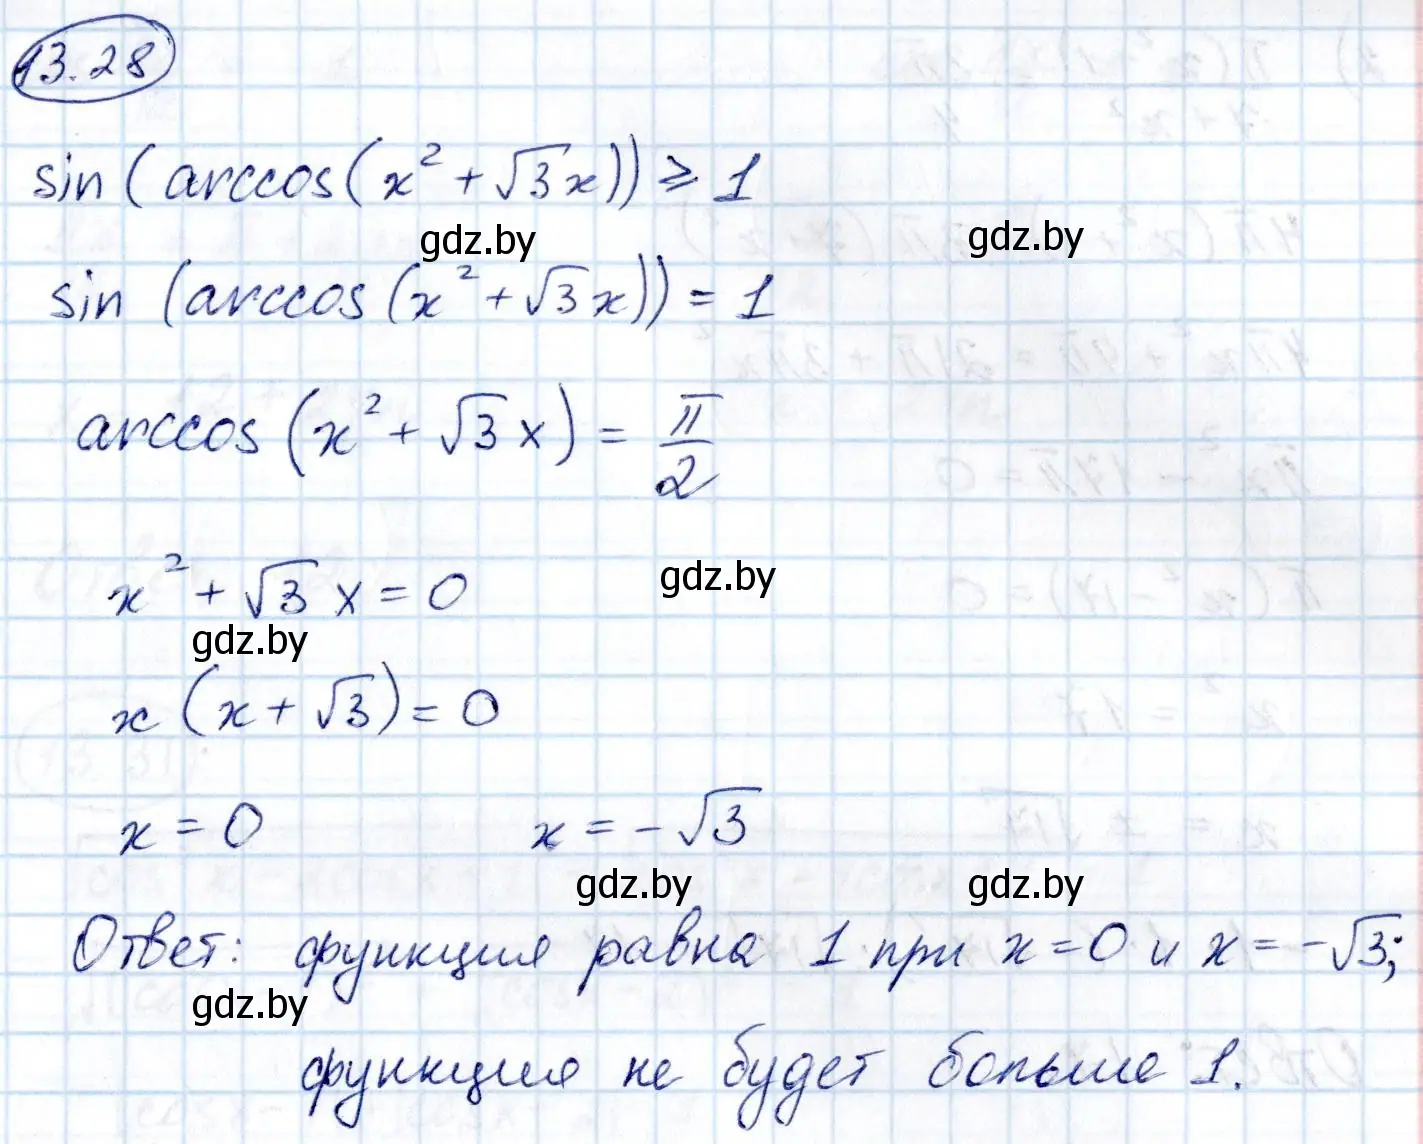 13.28
sin(arccos(x² + √3x)) ⩾ 1
gdz.by gdz.by
sin (arccos(x² + √3x)) = 1
arccos (x² + √3x) = π/2
x² + √3x = 0
gdz.by
gdz.by
x (x + √3) = 0
x = 0 x = -√3
gdz.by gdz.by
Ответ: функция равна 1 при x = 0 и x = -√3;
gdz.by
функция не будет больше 1.